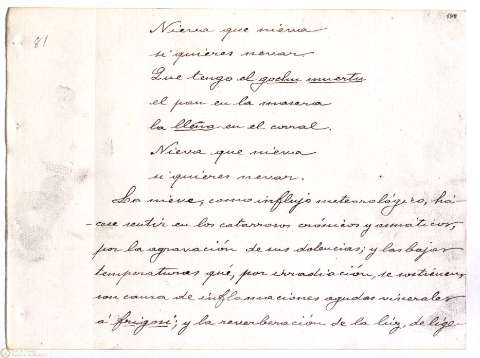 81
Nieva que nieva
si quieres nevar
Que tengo el gochu muertu
el pan en la masera
la lleña en el corral.
Nieva que nieva
si quieres nevar.
La nieve, como influjo meteorológico, há-
-cese sentir en los catarrosos crónicos y asmáticos,
por la agravación de sus dolencias; y las bajas
temperaturas que, por irradiación, se sostienen,
son causa de inflamaciones agudas viscerales
á frigori; y la reverberación de la luz, de lige-